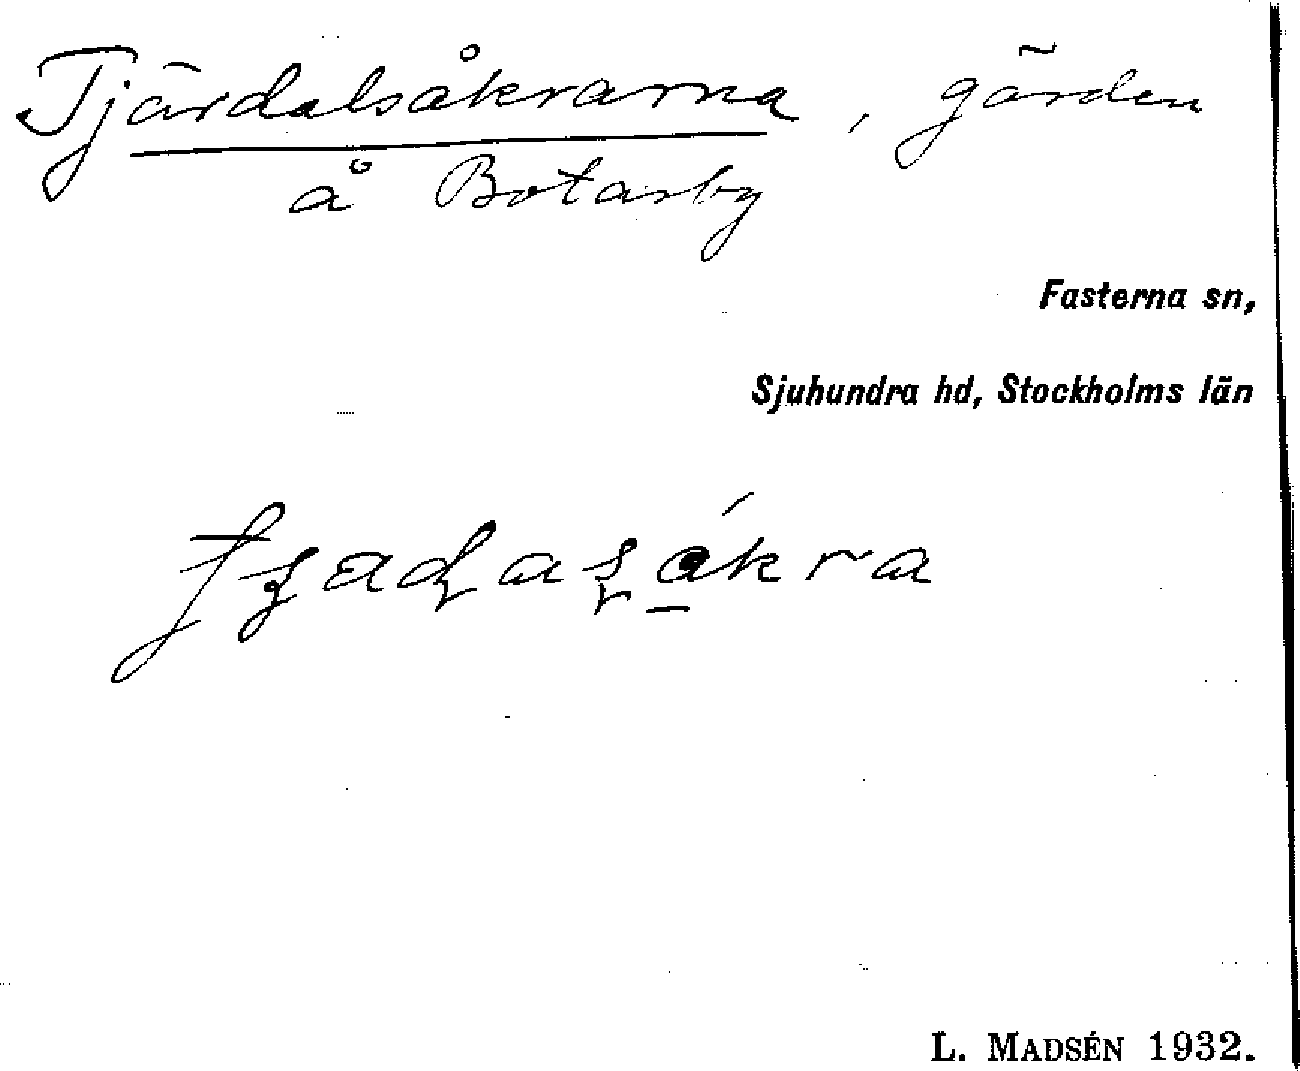 Tjärdalsåkrarna, gärden
å Botarby
Fasterna sn,
Sjuhundra hd, Stockholms län
L. MADSÉN 1932.